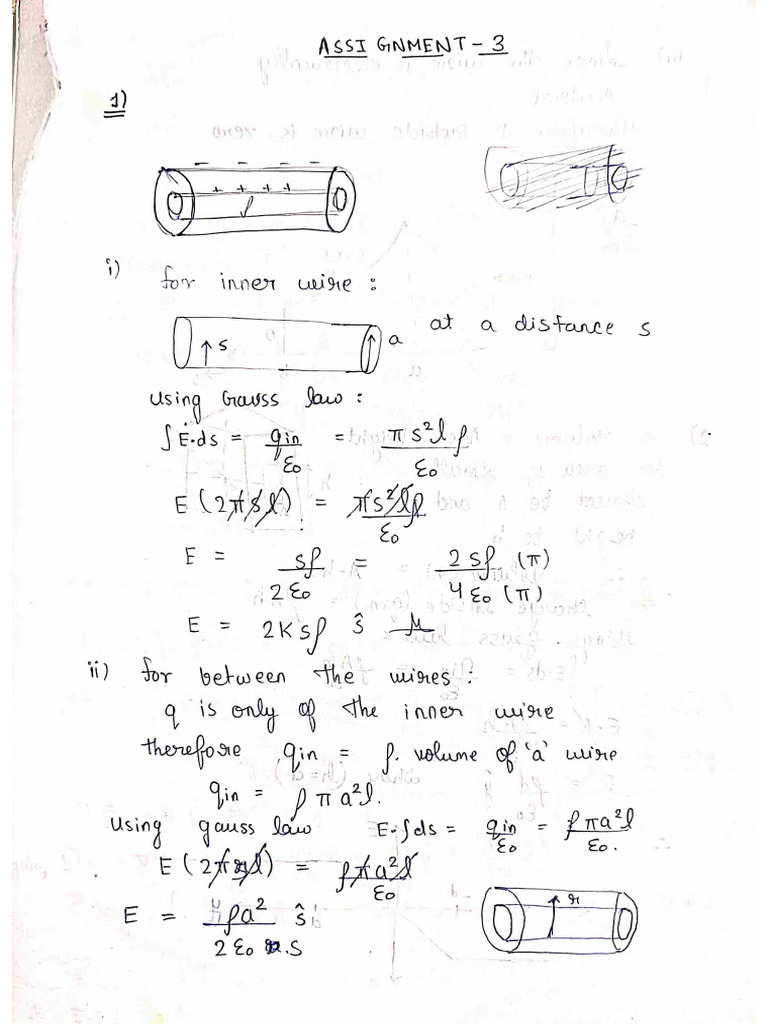 ASSIGNMENT - 3
1)
- - - -
+ + + +
ρ
i) for inner wire :
s a at a distance s
using Gauss law :
∫E.ds = qin/ε0 = πs²lρ/ε0
E (2πsl) = πs²lρ/ε0
E = sρ/2ε0 = 2sρ(π)/4ε0(π)
E = 2Ksρ ŝ
ii) for between the wires :
q is only of the inner wire
therefore, qin = ρ. volume of 'a' wire
qin = ρπa²l.
Using gauss law E.∫ds = qin/ε0 = ρπa²l/ε0.
E (2πsl) = ρπa²l/ε0
E = ρa²/2ε0.s ŝ
r